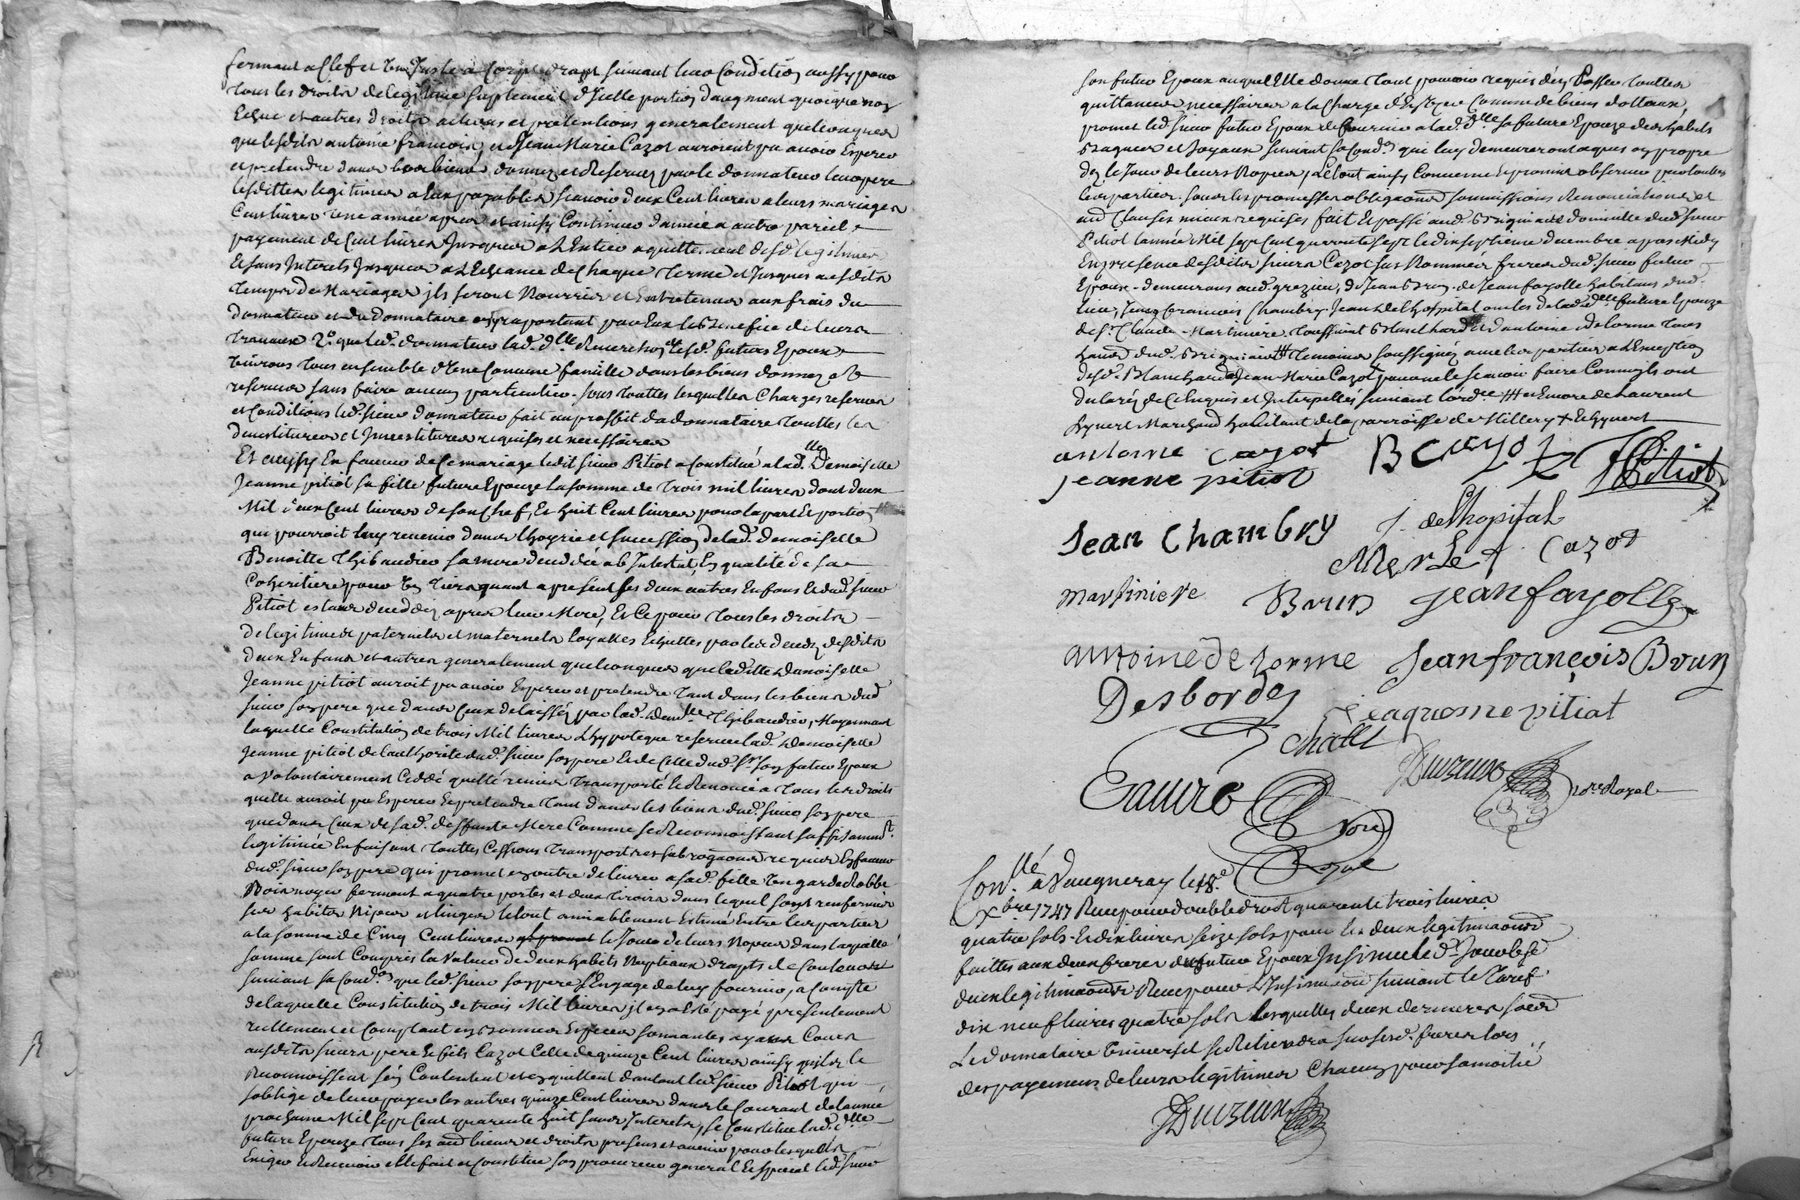 fermant a Clef et Un Juste a Corps drapt suivant leur Condition aussy pour
tous les droits de legitime suplement d'Icelle portion d'augment quoique non
Echue et autres droits actions et pretentions generalement quelconques
que lesdits antoine francois, et Jean Marie Cazot auroient pu avoir Esperer
et pretendre dans les biens donnez et Reservez par le donnateur leur pere
lesdittes legitimes a Eux payables sçavoir deux Cent livres a leurs mariages
Cent livres Une année apres et ainsy Continuer d'année a autre pareil
payement de Cent livres Jusques a L'Entier aquittement desd. legitimes
Et sans Interets Jusques a L'Echeance de Chaque terme et Jusques auxdits
temps de Mariages ils seront Nourries et Entretenus aux frais du
donnateur et du donnataire en raportant par Eux le Benefice de leurs
travaux 2.° que led. donnateur lad. d.lle Merechon et lesd. futurs Epoux
Vivrons tous ensemble d'Une Comune famille dans les biens donnez et
reservez sans faire aucun particulier. sous touttes lesquelles Charges reserves
et Conditions led. sieur donnateur fait au proffit du donnataire touttes les
devestitures et Investitures requises et necessaires
Et aussy En faveur de Ce mariage ledit sieur Pitiot a Constitué a lad. Demoiselle
Jeanne pitiot sa fille future Epouze la somme de trois mil livres dont deux
Mil deux Cent livres de son Chef, Et huit Cent livres pour la part Et portion
qui pourroit luy revenir dans L'hoyrie et succession de lad. demoiselle
Benoitte Thibaudier sa mere decedée ab Intestat, En qualité de sa
Coheritiere pour Un tiers quant a present ses deux autres Enfans Et dud. sieur
Pitiot estans decedez apres leur Mere, Et Ce pour tous les droits
de legitimes paternels et maternels loyalles Echuttes par le deced desdits
deux Enfans et autres generalement quelconques que laditte Demoiselle
Jeanne pitiot auroit pu avoir Esperer et pretendre tant dans les biens dud.
sieur son pere que dans Ceux delaissés par lad. dem.lle Thibaudier, Moyennant
laquelle Constitution de trois Mil livres L'hypoteque reservée lad. demoiselle
Jeanne pitiot de l'authorité dud. sieur son pere Et de Celle dud. Sr. son futur Epoux
a Volontairement Ceddé quitté remis transporté Et Renoncé a tous les droits
quelle auroit pu Esperer Et pretendre tant dans les biens dud. sieur son pere
que dans Ceux de sad. deffunte Mere Comme se Reconnoissant suffisamm.t
legitimée En faisant touttes Cessions transports et subrogations requises En faveur
dud. sieur son pere qui promet en outre de livrer a sad. fille Un garde Robbe
Bois noyer fermant a quatre portes et deux tiroirs dans lequel seront renfermés
ses habits Nipes et linges le tout amiablement Estimé Entre les parties
a la somme de Cinq Cent livres le Jour de leurs Nopces dans laquelle
somme sont Compris la Valeur de deux habits Nuptiaux drapts de Couleur
suivant sa Cond.on que led. sieur son pere s'Engage de luy fournir, a Compte
de laquelle Constitution de trois Mil livres il en a Esté payé presentement
reellement et Comptant en bonnes Especes sonnantes ayans Cours
auxdits sieurs pere Et fils Cazot Celle de quinze Cent livres ainsy quils le
Reconnoissent s'en Contentent et en quittent d'autant led. sieur Pitiot qui
s'oblige de leur payer les autres quinze Cent livres dans le Courant de lannée
prochaine Mil sept Cent quarente huit sans Interets, se Constitue lad. d.lle
future Epouze tous ses aud biens et droits presens et avenir pour lesquels
Exiger Et Recevoir elle fait et Constitue son procureur general Et special led. sieur
son futur Epoux auquel Elle donne tout pouvoir requis d'en Passer touttes
quittances necessaires a la Charge d'En Jouir Comme de biens dottaux,
promet led. sieur futur Epoux de fournir a lad. d.lle sa future Epouze des habits
Bagues et Joyaux suivant sa Cond.on qui luy demeureront aquis en propre
dez le Jour de leurs Nopces, Le tout ainsy Convenu Et promis observer par touttes
les parties sous les promesses obligaons soumissions Renonciations et
aud. Clauses mieux requises fait Et passé aud. Brignais domicille dud. sieur
Pitiot l'année Mil sept Cent quarente sept le dix septieme decembre apres Midy
En presence desdits sieurs Cazot sus Nommés freres dud. sieur futur
Epoux - demeurans aud. grezieu, de Jean Brun, de Jean fayolle habitans dud.
lieu, Jean francois Chambry Jean de L'hospital oncles de lad. d.lle future Epouze
de Sr. Claude Martiniere Toussaint Blanchard Et d'antoine delorme tous
habid dud. Brignais # temoins soussignés avec les parties a L'Exception
desd. Blanchard Jean Marie Cazot pour ne le sçavoir faire Comme ils ont
declaré de Ce Enquis et Interpellés suivant l'ord.ce # et Encore de Laurent
hyvert Marchand habitant de la parroisse de Millery + Et hyvert
antoine cazot B Cazot JPitiot
jeanne pitiot
Jean Chambry J. delhopital
Merlet Cazot
martiniere Brun jean fayolle
antoine de lorme Jean françois Brun
Desbordes jeaquesme pitiat
Duvzeux no.re Royal
Gauiro
Nore
Royal
Con.llé a Vaugneray le 18.e
Xbre 1747 Recu pour double droit quarente trois livres
quatre sols Et dix livres seize sols pour les deux legitimaons
faittes aux deux freres du futur Epoux Insinué led. Jour lesd.
deux legitimaons Recu pour L'Insinuaon suivant le Tarif
dix neuf livres quatre sols lesquelles deux dernieres soed
Le donnataire Universel se Retiendra sur sesd. freres lors
des payemens de leurs legitimes Chacun pour sa moitié
Duvzeux